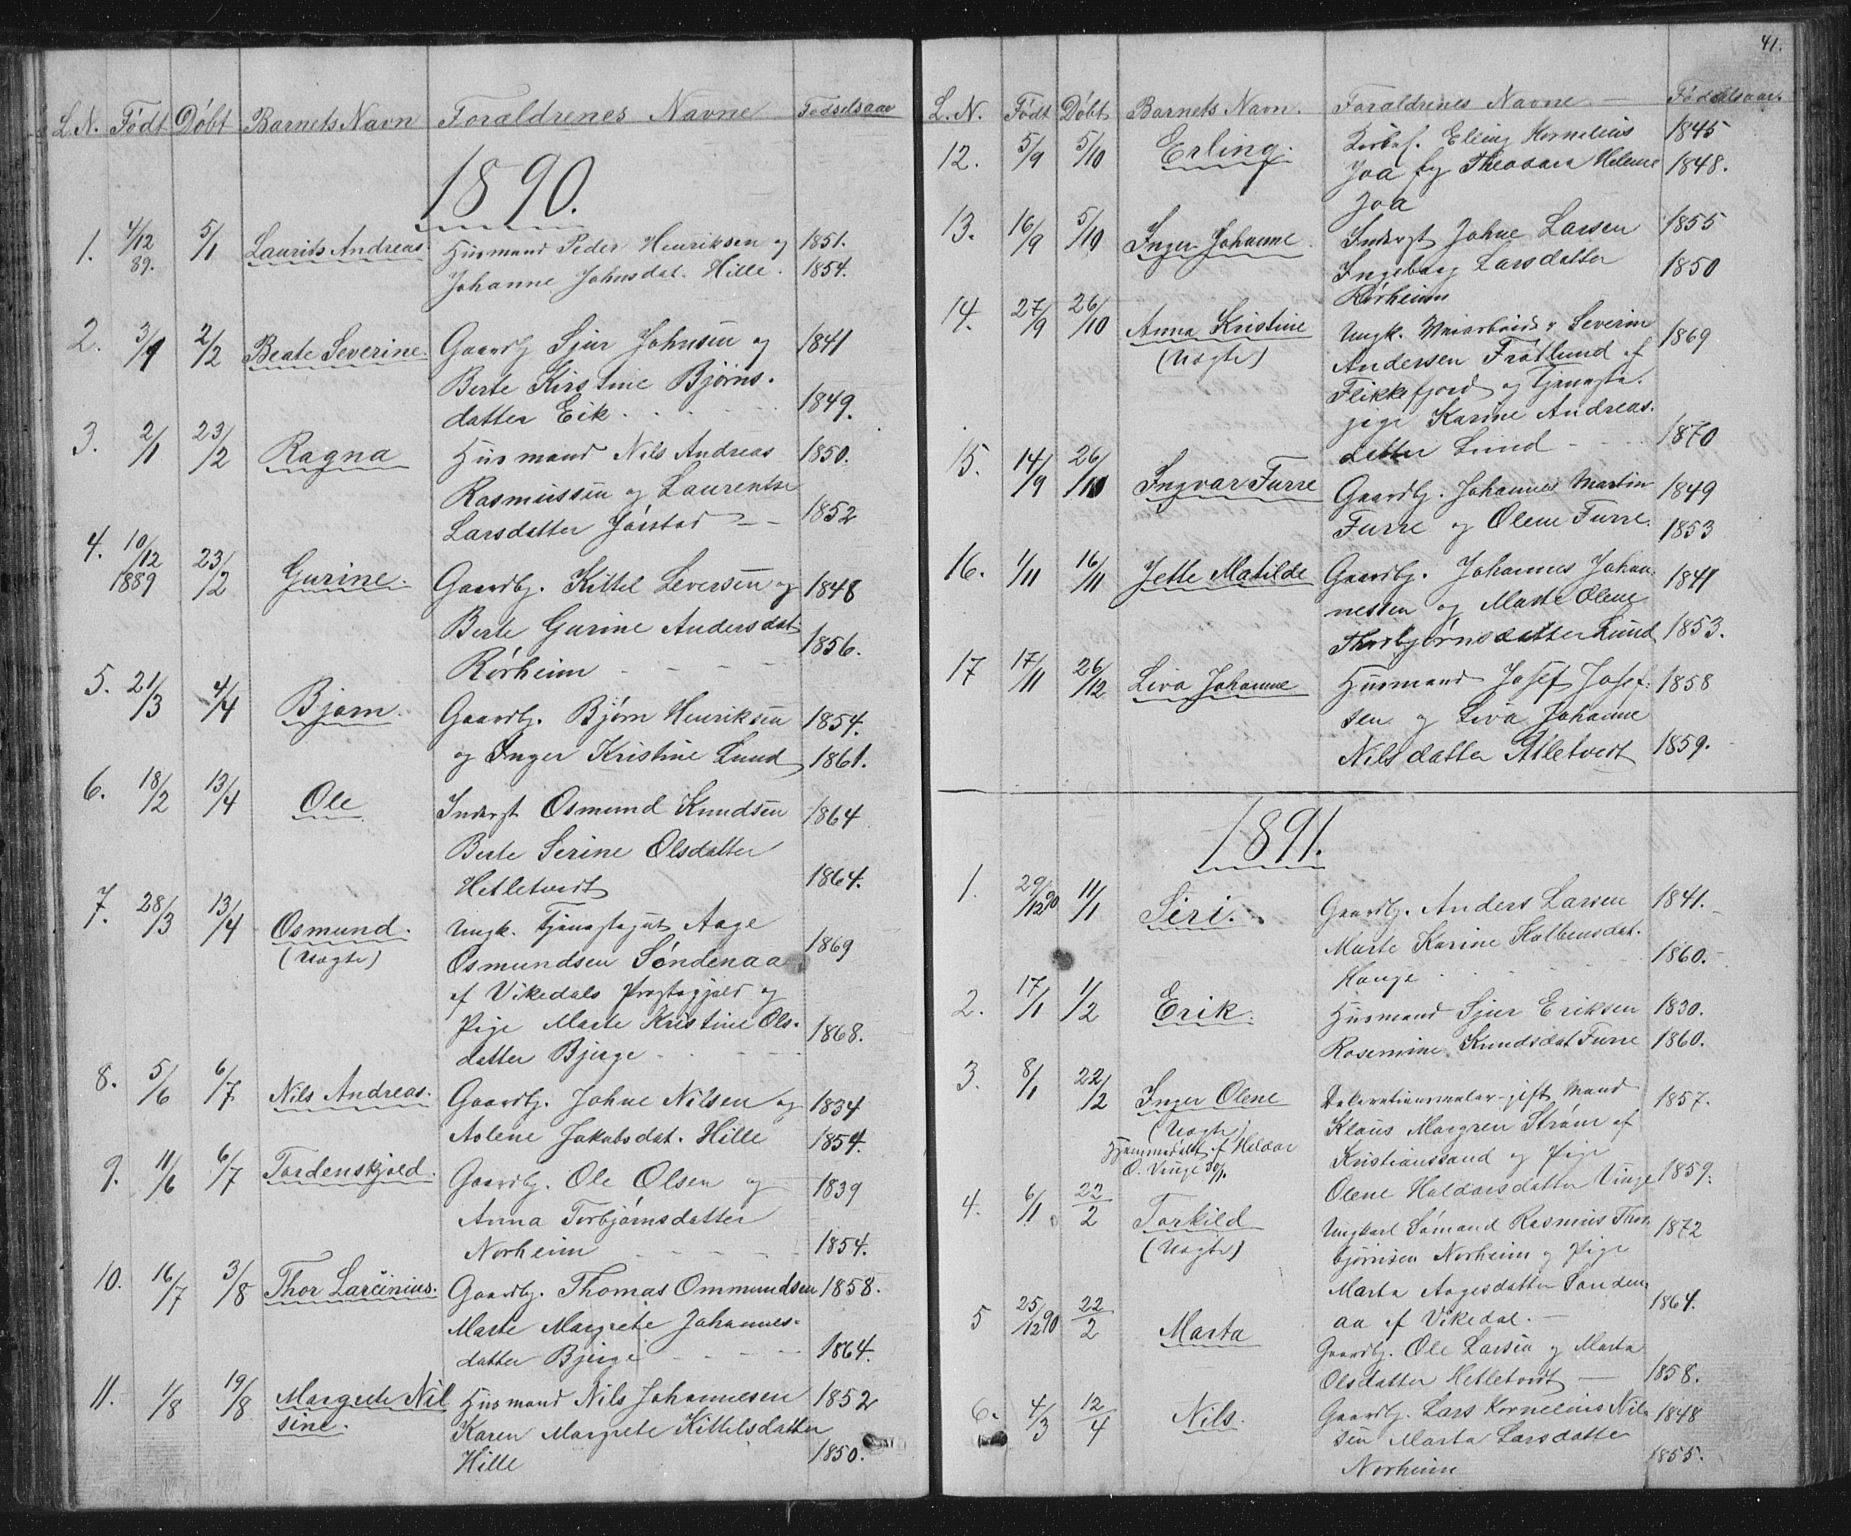 L.N. Født Døbt Barnets Navn Foraldrenes Navne Fødselsaar
1890.
1. 4/12 89. 5/1 Laurits Andreas Husmand Peder Henriksen og 1851.
Johanne Johnsdat. Hille. 1854.
2. 3/1 2/2 Beate Severine. Gaardbr. Sjur Johnsen og 1841
Berte Kirstine Bjørns-
datter Eik. 1849.
3. 2/1 23/2 Ragna Husmand Nils Andreas 1850.
Rasmussen og Laurentse
Larsdatter Jørstad 1852
4. 10/12 1889 23/2 Gurine. Gaardbr. Kittel Seversen og 1848
Berte Gurine Andersdat.
Rørheim 1856.
5. 21/3 4/4 Bjørn. Gaardbr. Bjørn Henriksen 1854.
og Inger Kristine Lund 1861.
6. 18/2 13/4 Ole Inderst Osmund Knudsen 1864
Berte Serine Olsdatter
Hetletvedt 1864.
7. 28/3 13/4 Osmund. Ungk. Tjenestegut Aage
(Uægte) Osmundsen Søndenaa 1869
af Vikedals Præstegjeld og
Pige Marte Kristine Ols-
datter Bjerge 1868.
8. 5/6 6/7 Nils Andreas. Gaardbr. Johne Nilsen og 1834
Aolene Jakobsdat. Hille 1854.
9. 11/6 6/7 Tordenskjold. Gaardbr. Ole Olsen og 1839
Anna Torbjørnsdatter
Norheim 1854.
10. 16/7 3/8 Thor Larcinius. Gaardbr. Thomas Ommundsen 1858.
Marte Margrete Johannes-
datter Bjerge 1864.
11. 1/8 19/8 Margrete Nil Husmand Nils Johannesen 1852
sine. Karen Margrete Kittelsdatter
Hille 1850.
41.
L.N. Født Døbt Barnets Navn. Foraldrenes Navne Fødselsaar.
12. 5/9 5/10 Erling. Elling Kornelius 1845
Joa og Theodora Helene 1848.
Joa
13. 16/9 5/10 Inger Johanne Inderst Johne Larsen 1855
Ingeborg Larsdatter 1850
Rørheim
14. 27/9 26/10 Anna Kristine Ungk. Veiarbeider Severin 1869
(Uægte) Andersen Frøtlund af
Flikkefjord og Tjeneste-
pige Karine Andreas-
datter Lund 1870
15. 14/9 26/10 Ingvar Furre Gaardbr. Johannes Martin 1849
Furre og Olene Furre. 1853
16. 1/11 16/11 Jette Matilde Gaardbr. Johannes Johan- 1841
nessen og Marte Olene
Thorbjørnsdatter Lund 1853.
17 17/11 26/12 Liva Johanne Husmand Josef Josef- 1858
sen og Liva Johanne
Nilsdatter Atletvedt 1859.
1891.
1. 29/12 90 11/1 Siri. Gaardbr. Anders Larsen 1841.
Marte Karine Kolbensdat.
Hauge 1860.
2. 17/1 1/2 Erik. Husmand Sjur Eriksen 1830.
Rosemine Knudsdat. Furre 1860.
3. 8/1 22/2 Inger Olene Dekorationsmaler-gift Mand 1857.
(Uægte) Klaus Margren Strøm af
Hjemmedøbt af Haldor Kristianssand og Pige
O. Vinge Olene Haldorsdatter Vinge 1859.
4. 6/1 22/2 Torkild Ungkarl Sømand Rasmus Thor- 1872
(Uægte) bjørnsen Norheim og Pige
Marta Aagesdatter Sønden-
aa af Vikedal. 1864.
5 25/12 90 22/2 Marta Gaardbr. Ole Larsen og Marta
Olsdatter Hetletvedt 1858.
6. 4/3 12/4 Nils. Gaardbr. Lars Kornelius Nil- 1848
sen Marta Larsdatter
Norheim 1855.